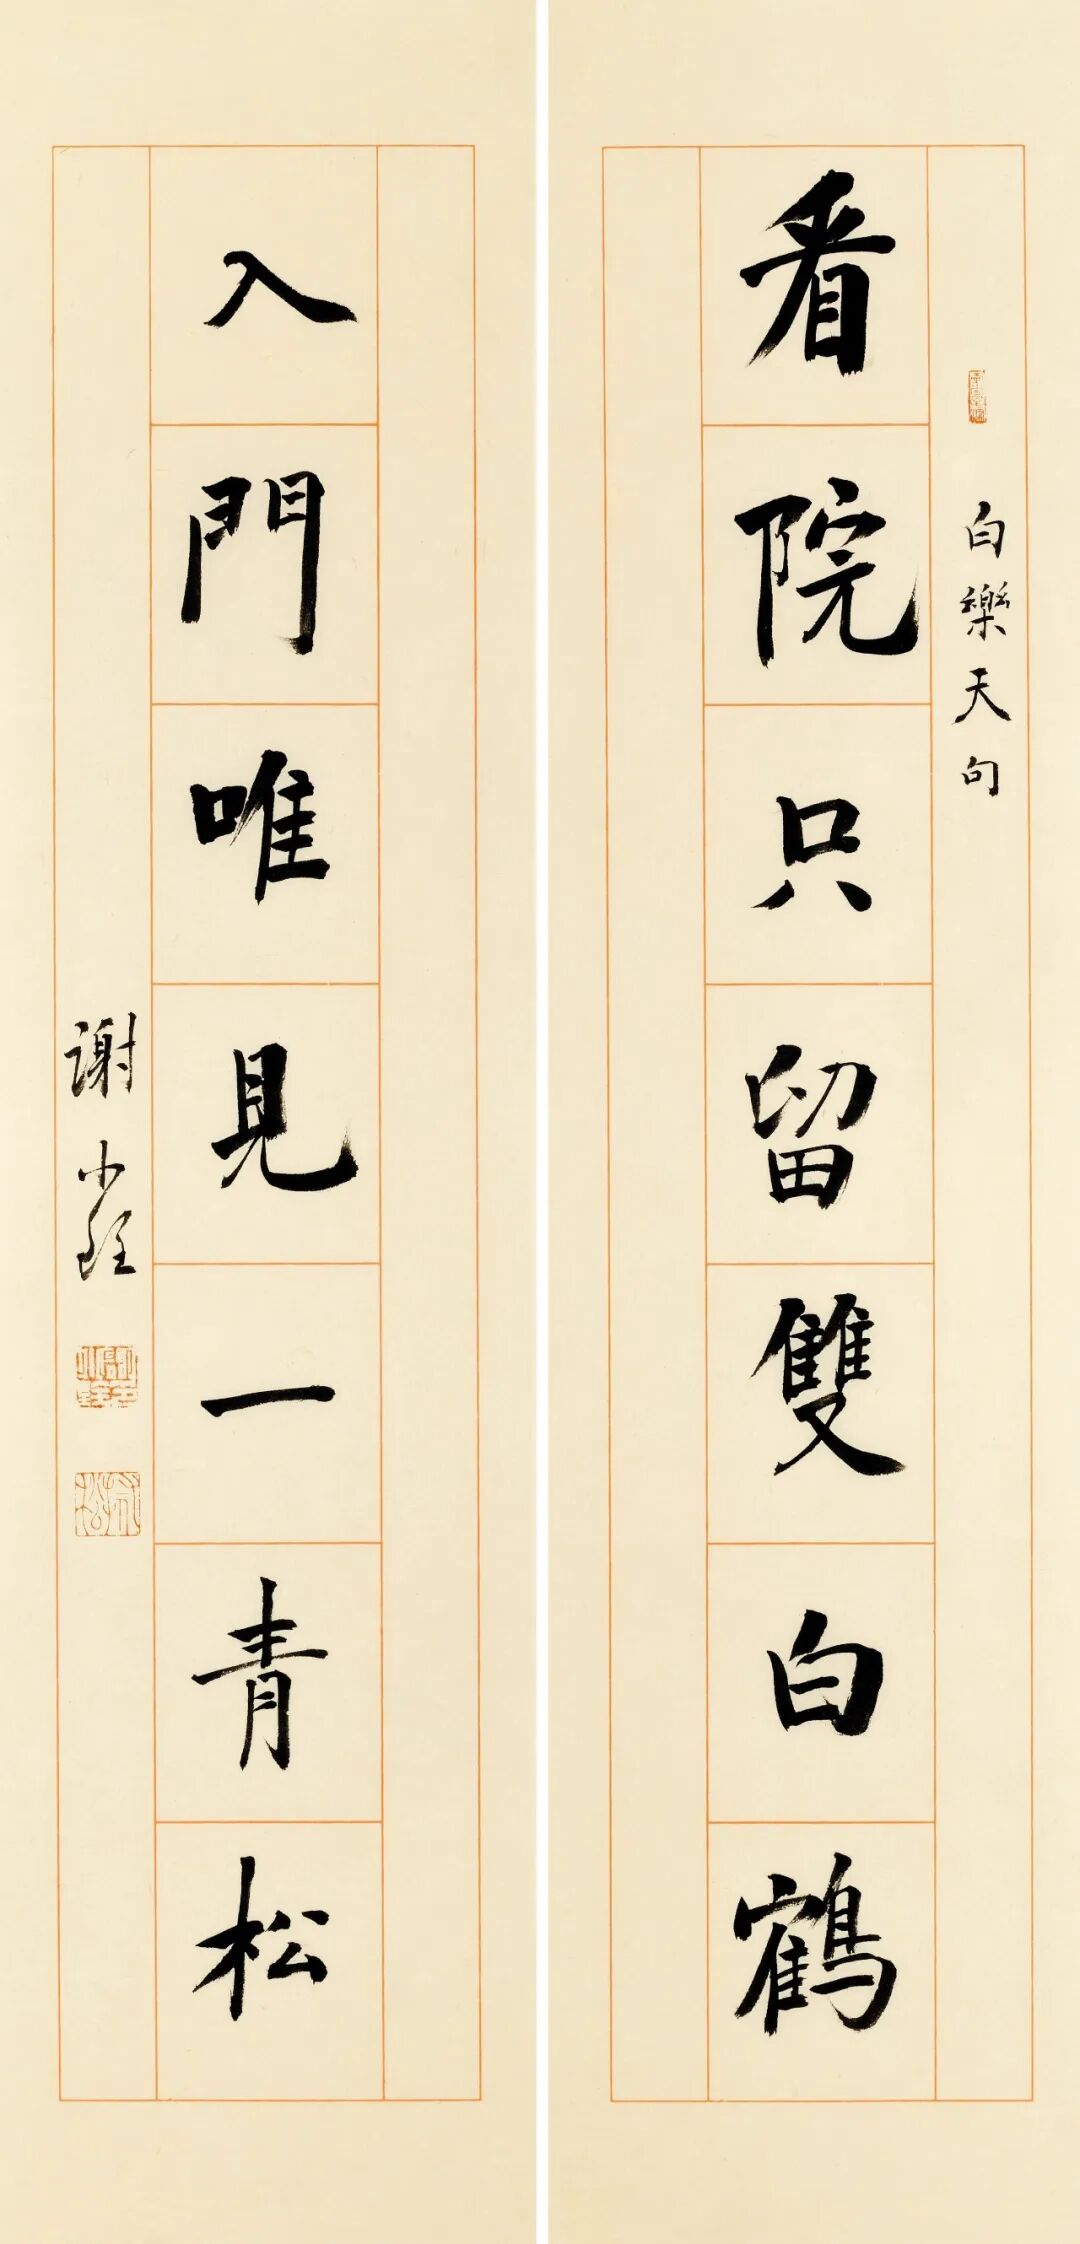 白樂天句
看院只留雙白鶴
入門唯見一青松
謝小銓